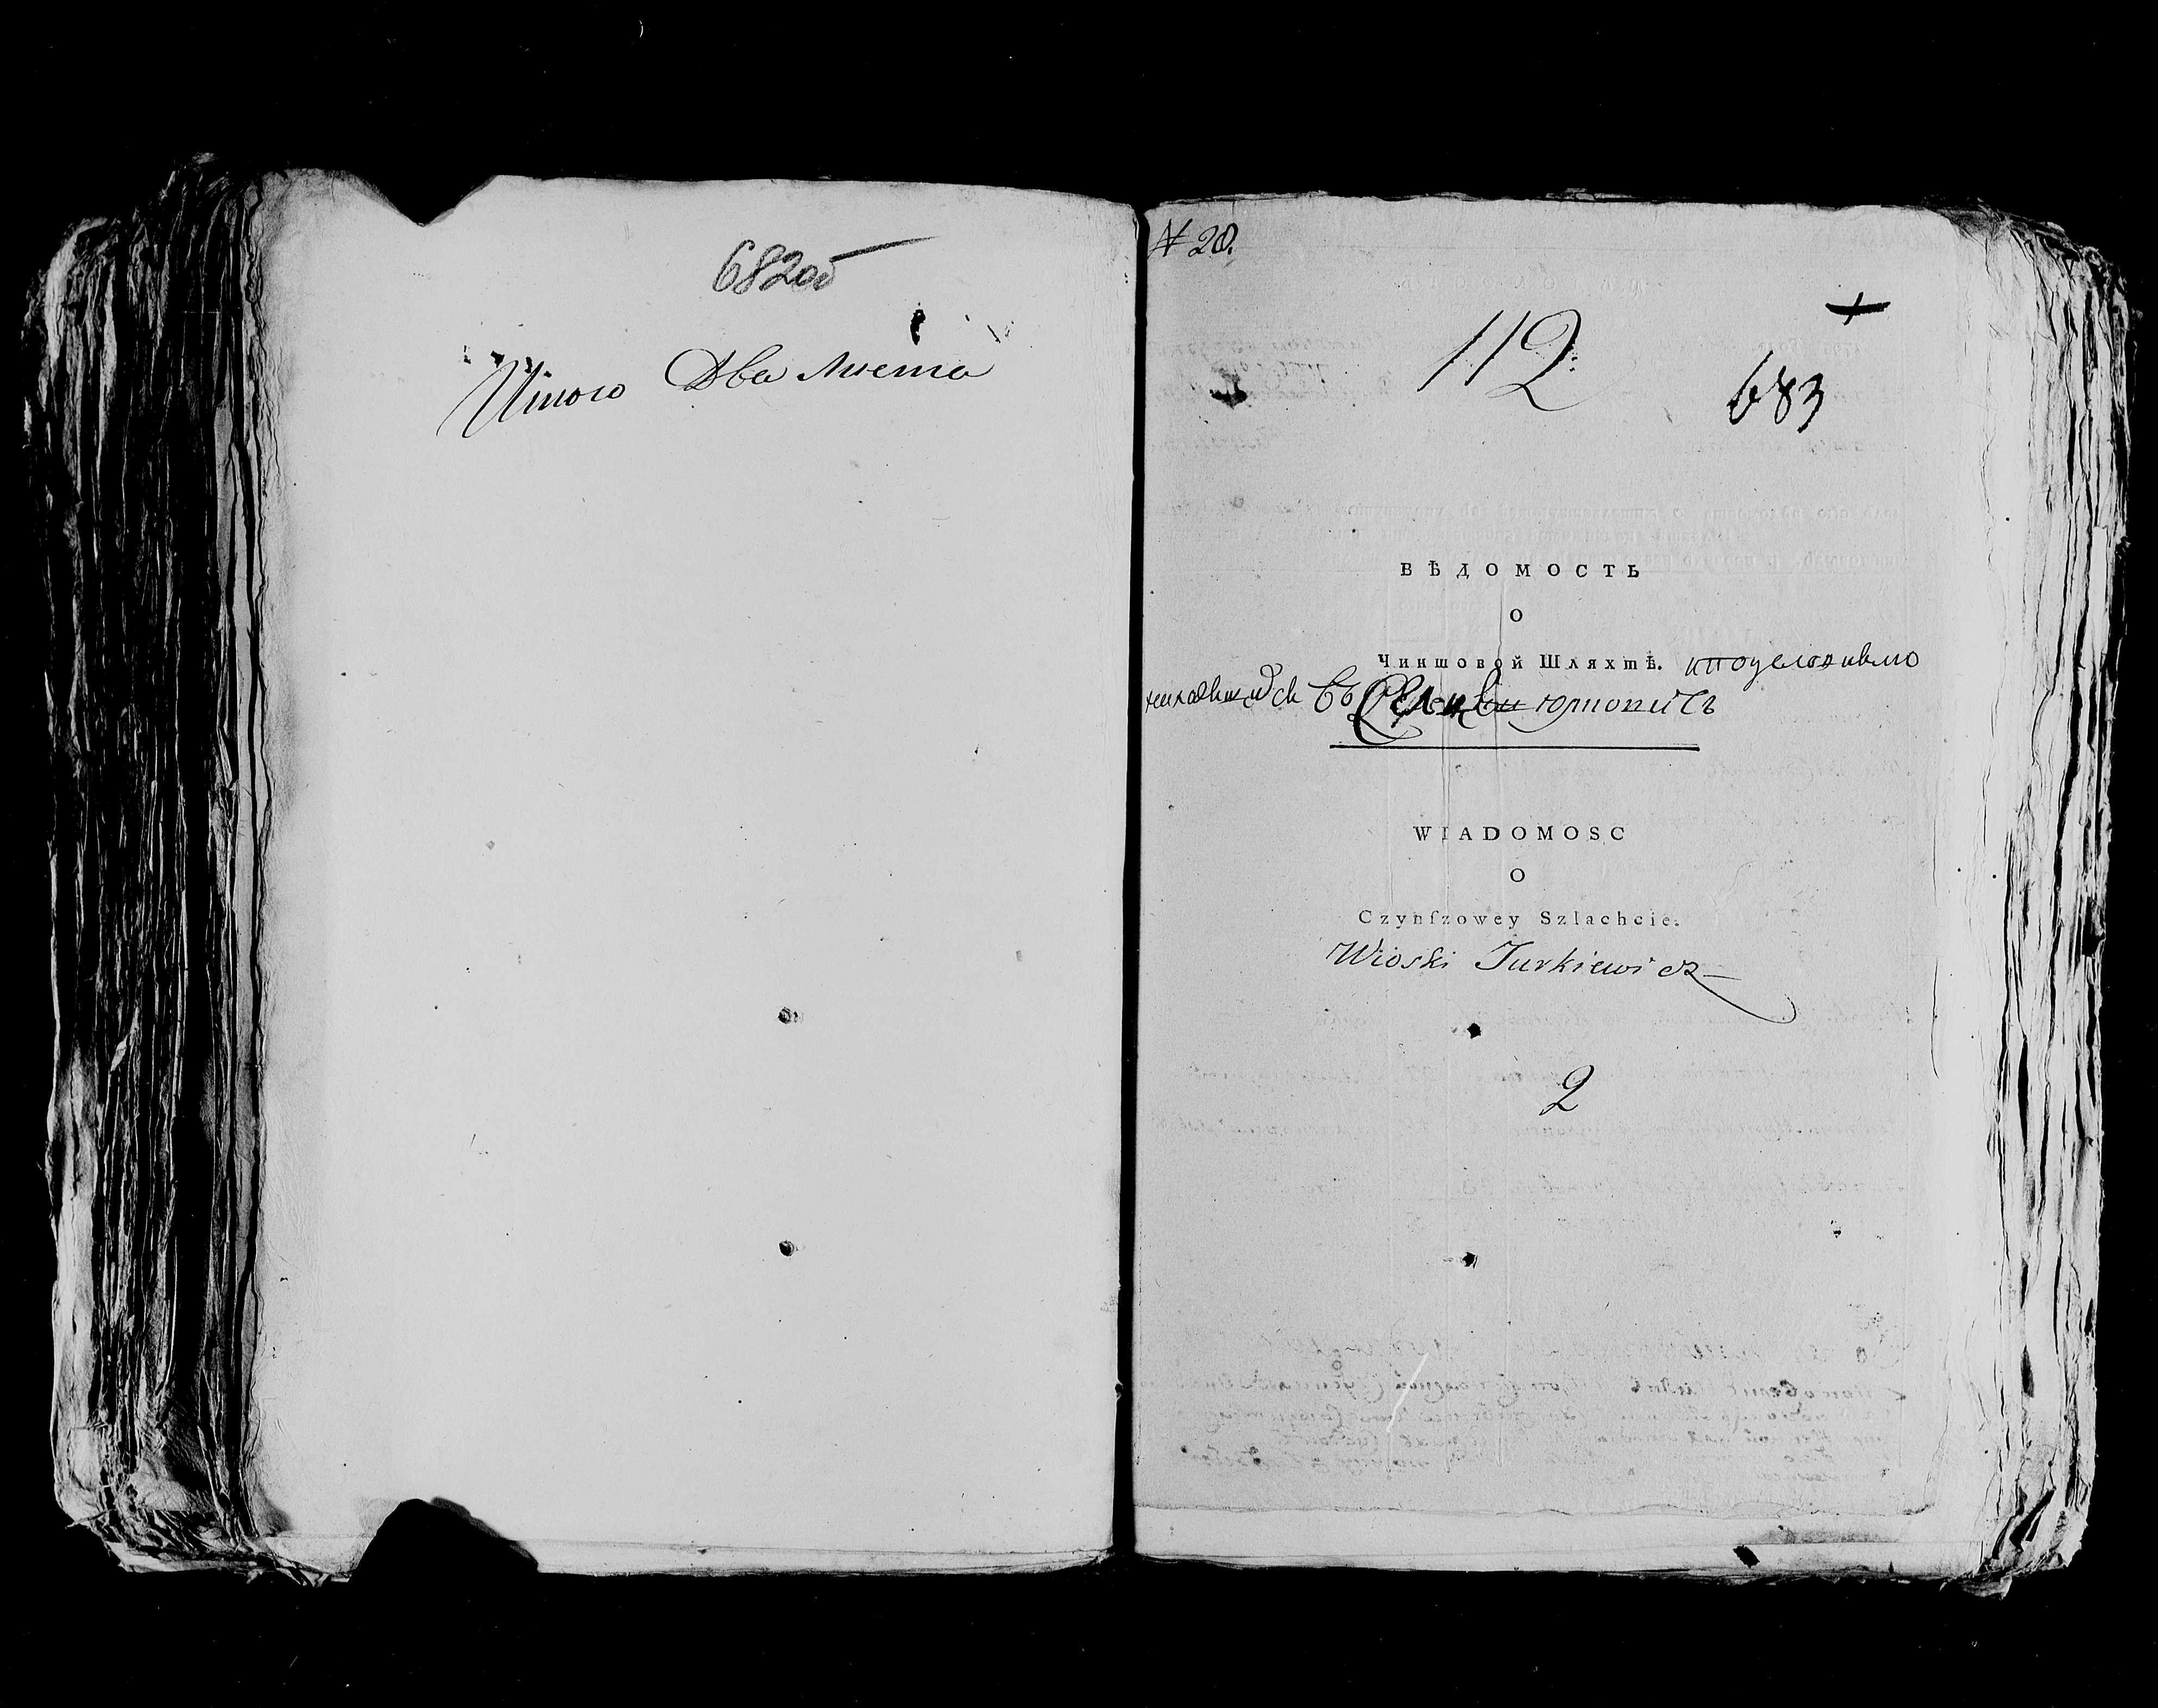 682об
Итого Два листа
№ 28.
112:
683
ВѢДОМОСТЬ
О
Чиншовой Шляхтѣ.
въ
WIADOMOSC
O
Czynſzowey Szlachcie.
Wioski Jurkiewicz
2